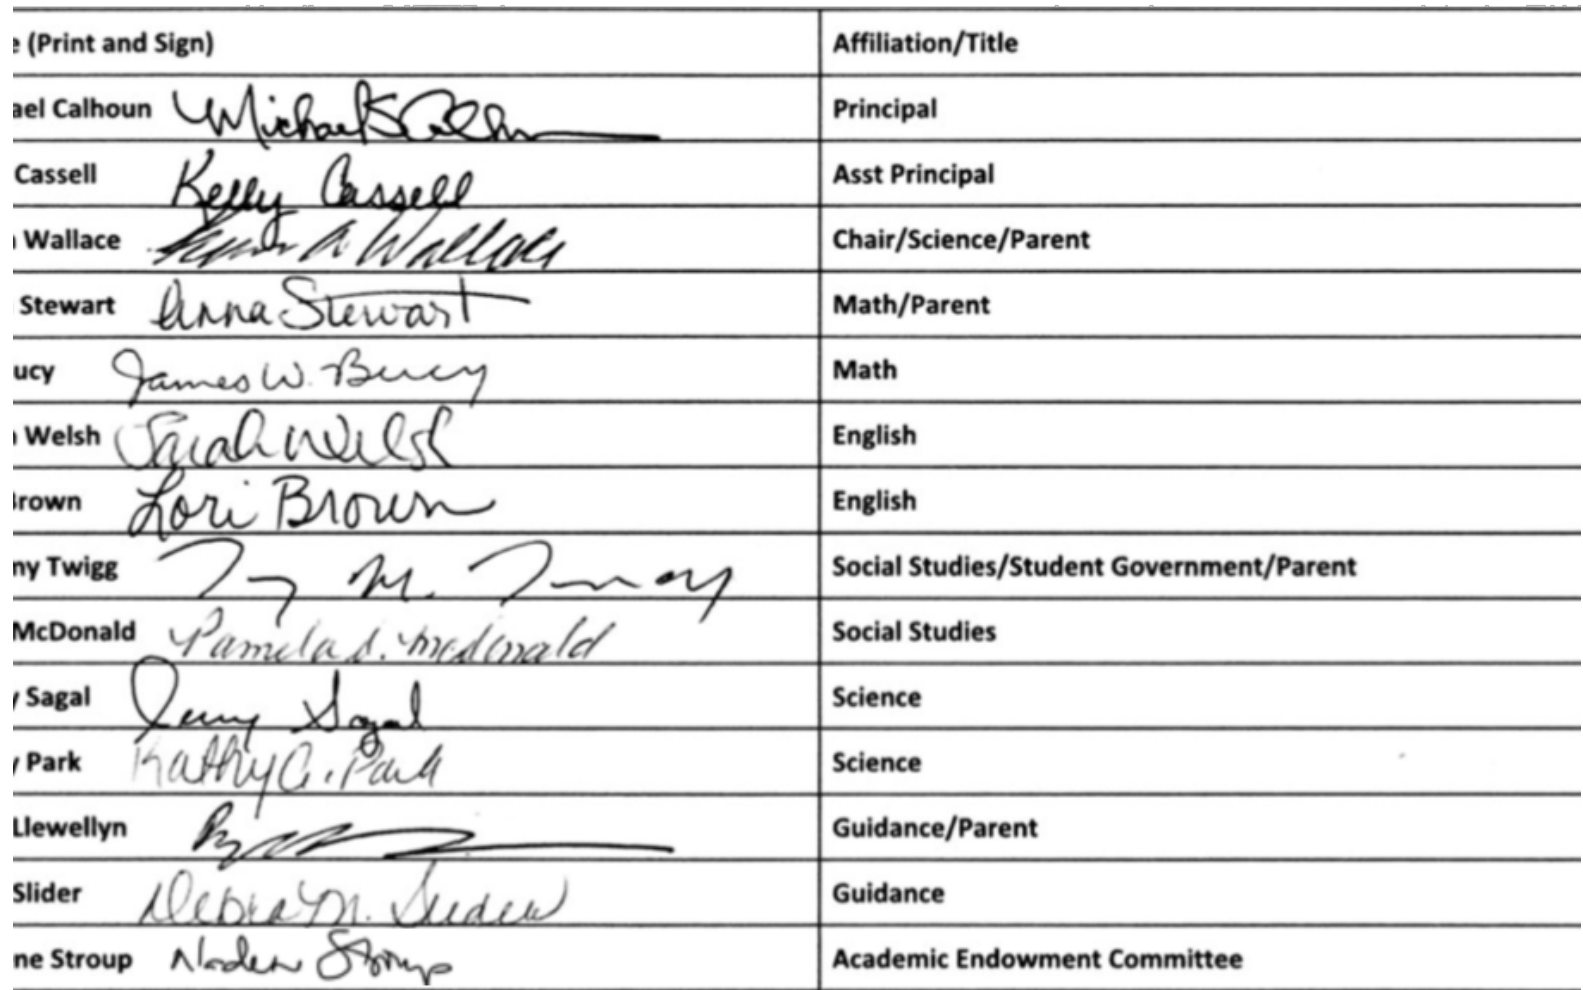 e (Print and Sign) Affiliation/Title
ael Calhoun Michael Principal
Cassell Kelly Cassell Asst Principal
Wallace A Wallace Chair/Science/Parent
Stewart Anna Stewart Math/Parent
ucy James W. Bucy Math
Welsh Sarah Welsh English
rown Lori Brown English
ny Twigg M. Social Studies/Student Government/Parent
McDonald Pamela McDonald Social Studies
Sagal Jerry Sagal Science
Park Kathy A. Park Science
Llewellyn Guidance/Parent
Slider Debra M. Slider Guidance
ne Stroup Stroup Academic Endowment Committee